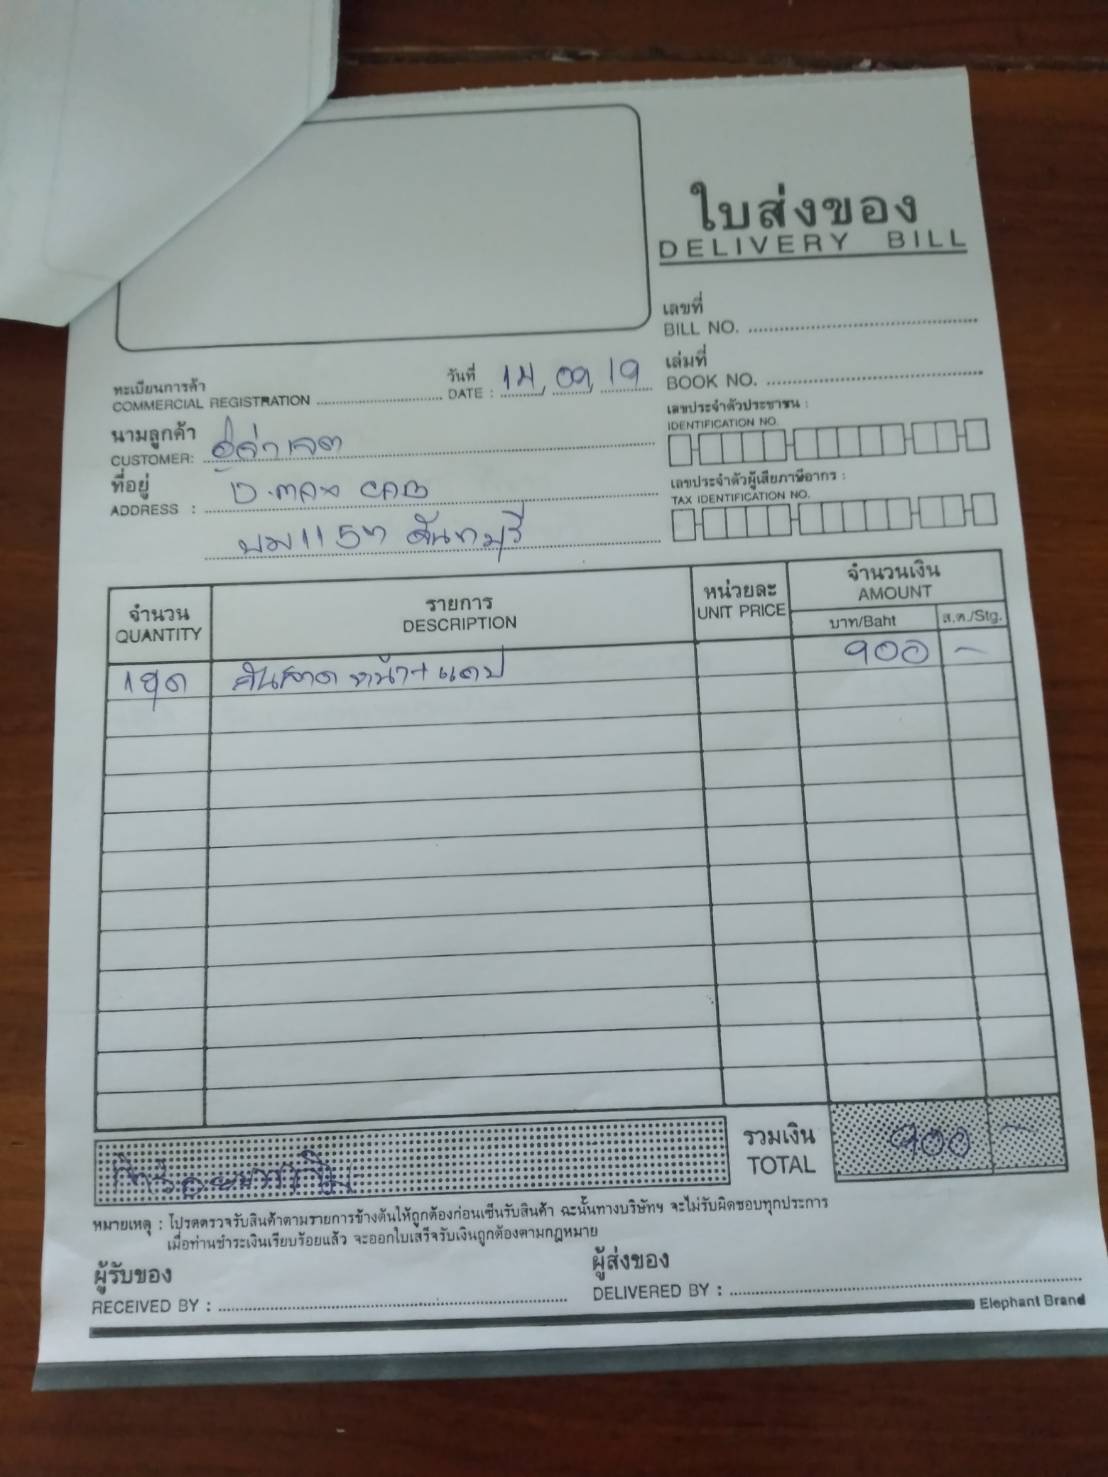 ใบส่งของ
DELIVERY BILL
เลขที่
BILL NO.
เล่มที่
BOOK NO.
ทะเบียนการค้า
COMMERCIAL REGISTRATION
วันที่
DATE : 14, 09, 19
เลขประจำตัวประชาชน :
IDENTIFICATION NO.
นามลูกค้า
CUSTOMER:
ที่อยู่
ADDRESS :
เลขประจำตัวผู้เสียภาษีอากร :
TAX IDENTIFICATION NO.
จันทบุรี
จำนวน
QUANTITY
รายการ
DESCRIPTION
หน่วยละ
UNIT PRICE
จำนวนเงิน
AMOUNT
บาท/Baht
ส.ต./Stg.
1 ชุด หน้า+ แคป 900 -
รวมเงิน
TOTAL
900 -
หมายเหตุ : โปรดตรวจรับสินค้าตามรายการข้างต้นให้ถูกต้องก่อนเซ็นรับสินค้า ฉะนั้นทางบริษัทฯ จะไม่รับผิดชอบทุกประการ
เมื่อท่านชำระเงินเรียบร้อยแล้ว จะออกใบเสร็จรับเงินถูกต้องตามกฎหมาย
ผู้รับของ
RECEIVED BY :
ผู้ส่งของ
DELIVERED BY :
Elephant Brand